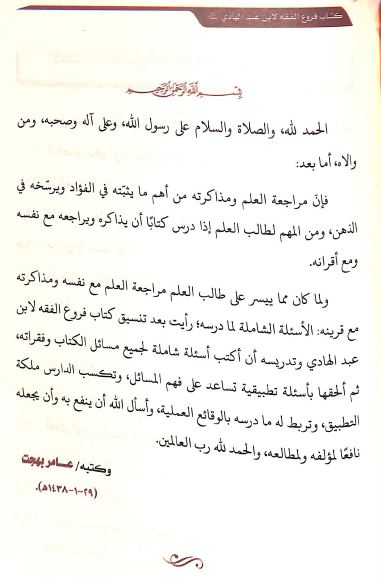 كتاب فروع الفقه لابن عبد الهادي
بسم الله الرحمن الرحيم
الحمد لله، والصلاة والسلام على رسول الله، وعلى آله وصحبه، ومن
والاه، أما بعد:
فإنّ مراجعة العلم ومذاكرته من أهم ما يثبّته في الفؤاد ويرسّخه في
الذهن، ومن المهم لطالب العلم إذا درس كتابًا أن يذاكره ويراجعه مع نفسه
ومع أقرانه.
ولما كان مما ييسر على طالب العلم مراجعة العلم مع نفسه ومذاكرته
مع قرينه: الأسئلة الشاملة لما درسه؛ رأيت بعد تنسيق كتاب فروع الفقه لابن
عبد الهادي وتدريسه أن أكتب أسئلة شاملة لجميع مسائل الكتاب وفقراته،
ثم ألحقها بأسئلة تطبيقية تساعد على فهم المسائل، وتكسب الدارس ملكة
التطبيق، وتربط له ما درسه بالوقائع العملية، وأسأل الله أن ينفع به وأن يجعله
نافعًا لمؤلفه ولمطالعه، والحمد لله رب العالمين.
وكتبه/ عامر بهجت
(٢٩-١-١٤٣٨هـ).